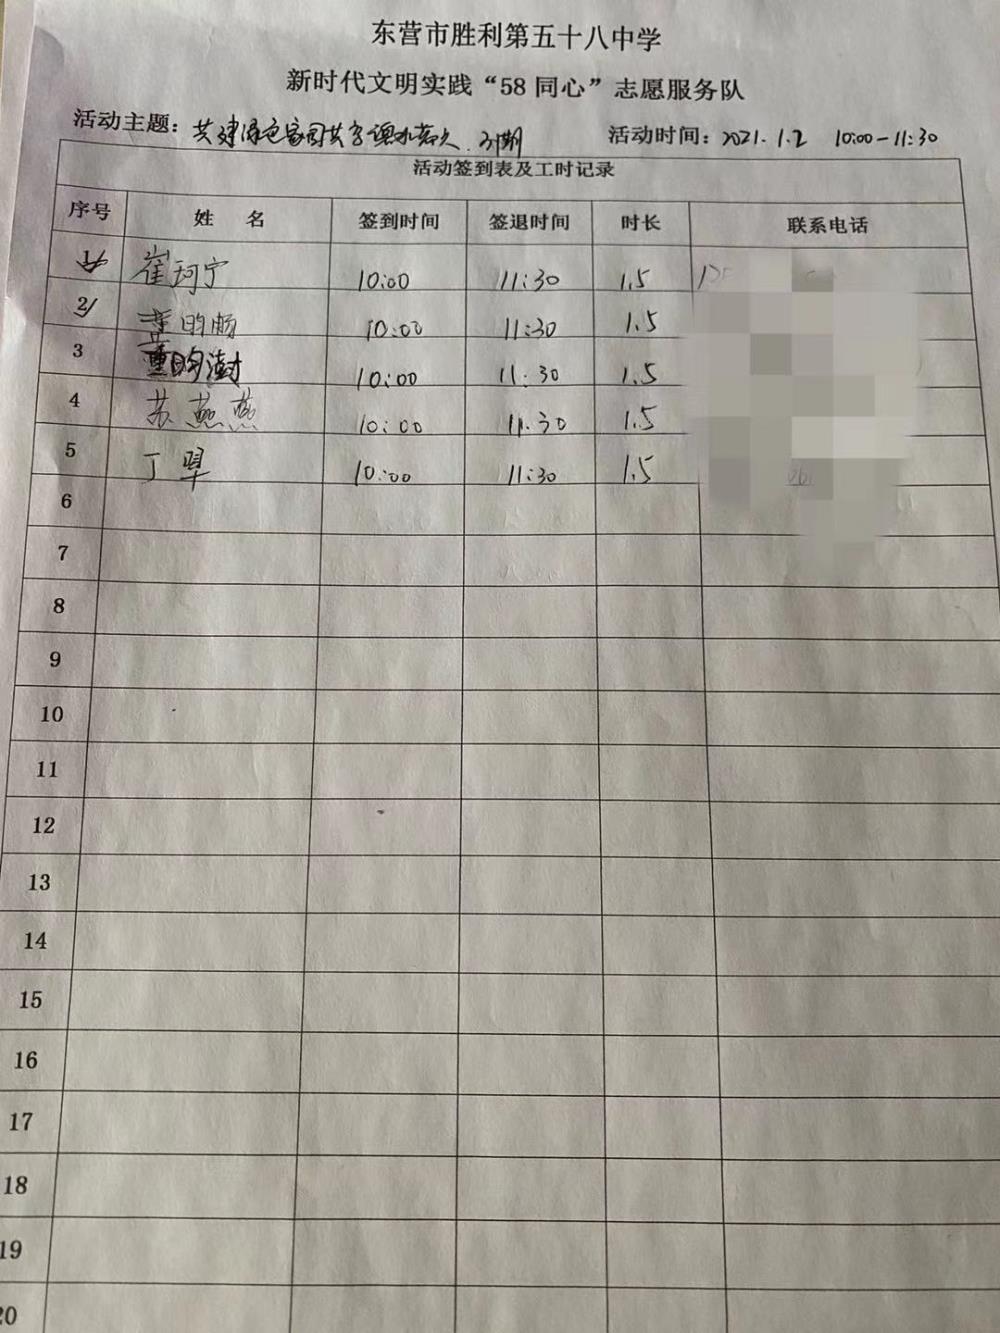 东营市胜利第五十八中学
新时代文明实践“58同心”志愿服务队
活动主题：共建绿色家园共享碧水蓝天 活动时间：2021.1.2 10:00-11:30
活动签到表及工时记录
序号 姓名 签到时间 签退时间 时长 联系电话
1 崔珂宁 10:00 11:30 1.5
2 董昀畅 10:00 11:30 1.5
3 董昀澍 10:00 11:30 1.5
4 苏燕燕 10:00 11:30 1.5
5 丁翠 10:00 11:30 1.5
6
7
8
9
10
11
12
13
14
15
16
17
18
19
20